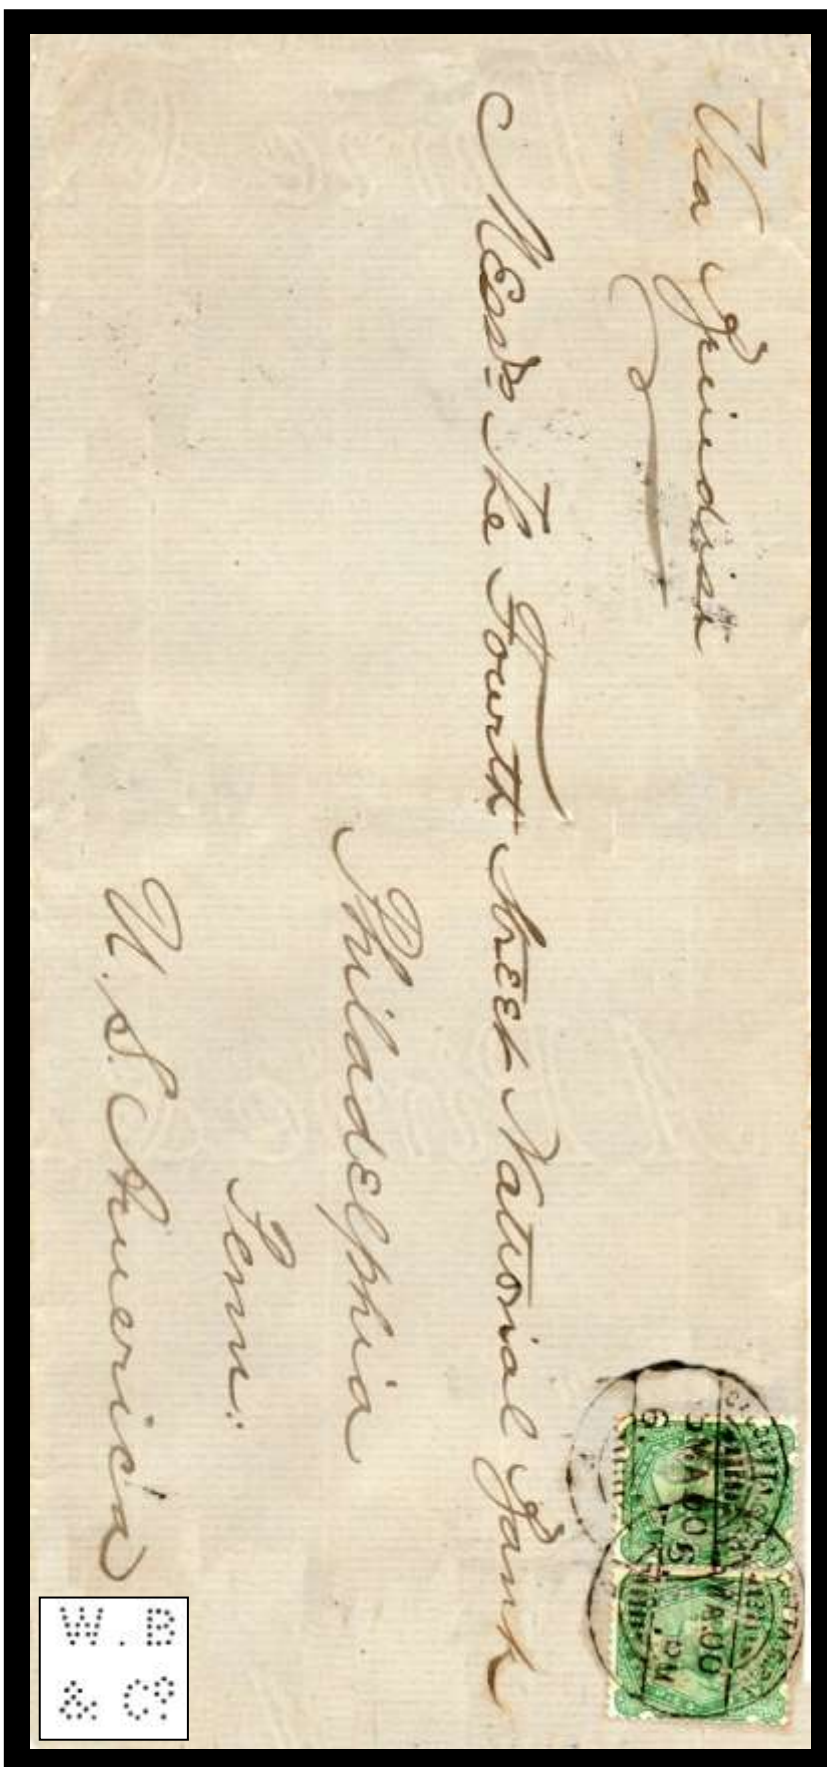 Via Brindisi
Messrs The Fourth Street National Bank
Philadelphia
Penn.
U.S. America
W.B
& Co